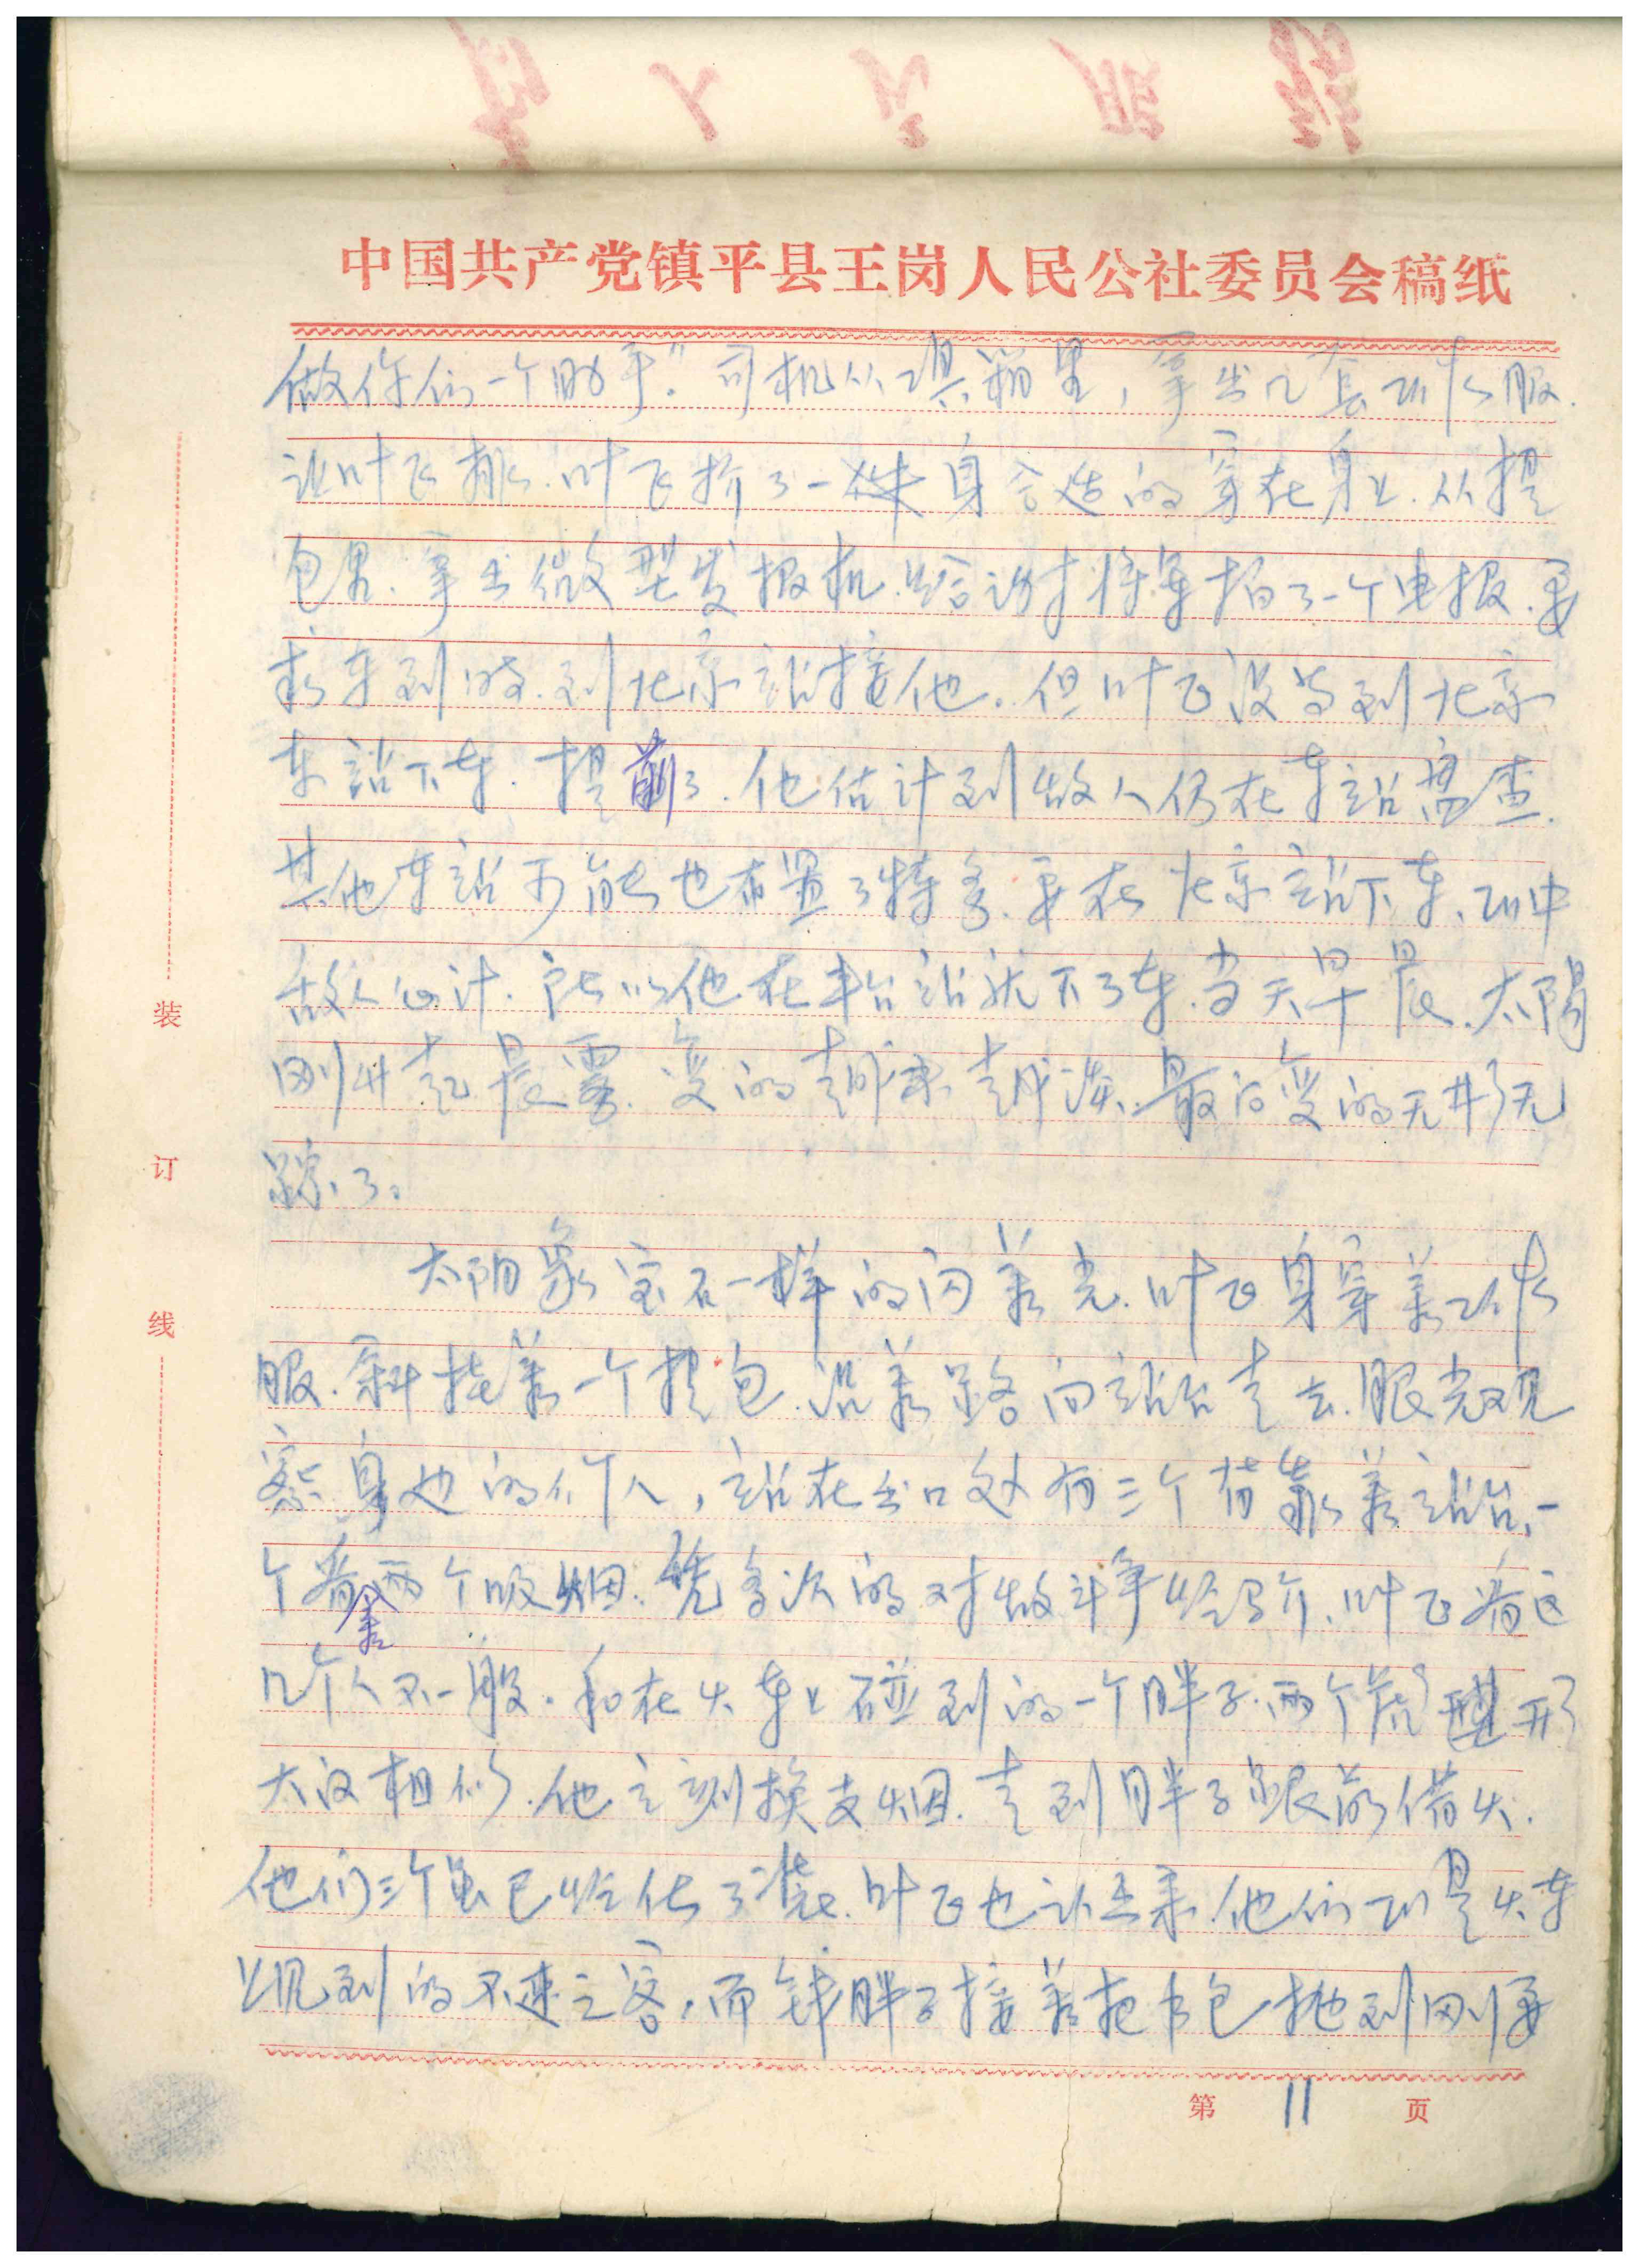 中国共产党镇平县王岗人民公社委员会稿纸
做你们一个助手。"司机从工具箱里,拿出几套工作服.
让叶飞挑.叶飞挤了一身合适的穿在身上.从提
包里.拿出微型发报机.给谢将军拍了一个电报.要
求车到时.到北京站接他.但叶飞没等到北京
车站下车.提前了.他估计到敌人仍在车站盘查.
其他车站可能也布置了特务.要在北京站下车、正中
敌人心计.所以他在丰台站就下了车.当天早晨.太阳
刚升起.晨雾.变的越来越淡.最后变的无形无
踪了。
太阳象宝石一样的闪着光.叶飞身穿着工作
服.斜挎着一个提包.沿着路向站台走去.眼光观
察身边的行人,站在出口处有三个背靠着站台,一
个看两个吸烟.凭多次的对敌斗争经验介、叶飞看这
几个人不一般.和在火车上碰到的一个胖子.两个虎形
大汉相似.他立刻换支烟.走到胖子跟前借火.
他们三个虽已经化了装.叶飞也认出来.他们正是火车
上见到的不速之客,而钱胖子接着把书包抛到刚要
装
订
线
第 11 页